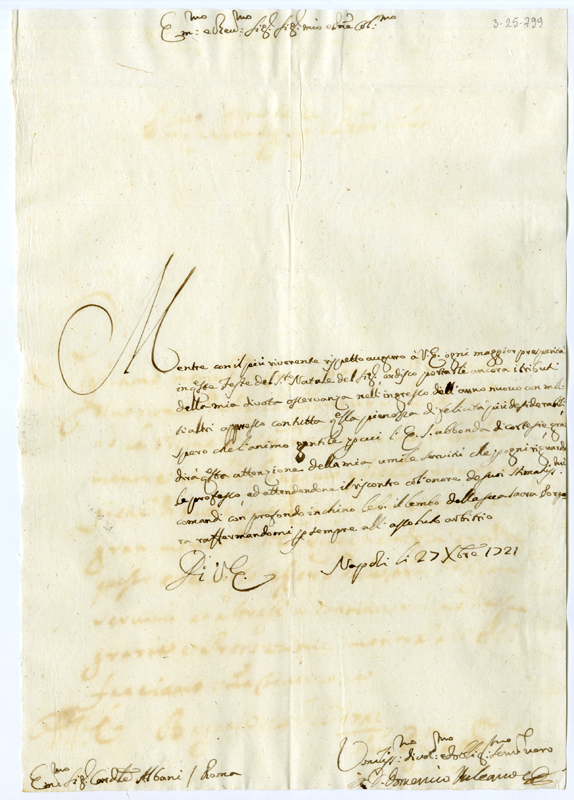 3-25-799
Em.mo e Rev.mo Sig.r Sig.r mio e Pne Col.mo
Mentre con il più riverente rispetto auguro à V.E. ogni maggior prosperità
in q.ste Feste del S.to Natale del Sig.re ardisco portarle ancora i tributi
della mia divota osservanza nell'ingresso dell'anno nuovo con mol-
ti altri appresso con tutta q.sta pienezza di felicità più desiderabili
spero che l'animo gentile p cui l'E.S. abbonda di cortesie, gra-
dirà q.sta attenzione della mia umile servitù che p ogni riguardo
le professo, ed attendendone il riscontro coll'onore de suoi stimatiss.mi
comandi con profondo inchino le bacio il lembo della sua sacra Porpo-
ra raffermandomi p sempre all'assoluto arbitrio
Di V.E. Napoli li 27 Xbre 1721
Em.mo Sig.r Card.le Albani / Roma
Umiliss.mo divot.mo ed obblig.mo Ser.re vero
D. Domenico